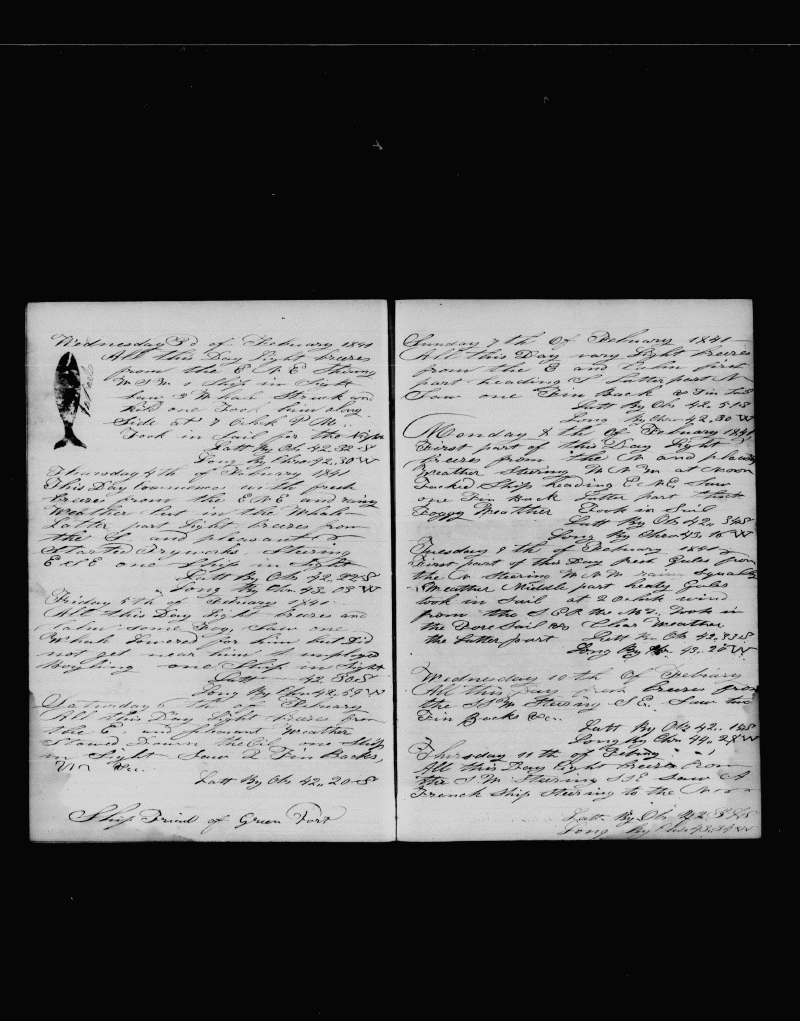 Wednesday 3d of Febuary 1841
All this Day light breezes
from the E N E Steering
W S W 1 Ship in Sight
Saw 3 Whals Struck and
kild one Took him along
Side at 7 Oclock P M
Took in Sail for the Night
Latt By Obs 42,32 S
Long By Chro 42,30 W
Thursday 4th of Febuary 1841
This Day commences with fresh
breezes from the E N E and rainy
Weather Cut in the Whale
Latter part Light breezes from
the S and pleasant &
Started Tryworks Steering
E S E one Ship in Sight
Latt By Obs 42,32 S
Long By Chr 43,03 W
Friday 5th of Febuary 1841
All this Day light breezes and
Calm some Fog, Saw one
Whale Lowered for him but Did
not get near him & employed
boyling one Ship in Sight
Latt 42,30 S
Long By Chr 42,59 W
Saturday 6 th of Febuary
All this Day Light breezes from
the E and pleasant Weather
Stowed Down the Oil one Ship
in Sight Saw 2 Fin Backs,
Latt By Obs 42,20 S
Ship Friend of Green Port
Sunday 7 th Of Febuary 1841
All this Day vary Light breezes
from the E and Calm first
part heading S Latter part N
Saw one Fin Back
Latt By Obs 42,51 S
Long By Chro 42,30 W
Monday 8 th Of Febuary 1841
First part of this Day Light
breezes from the N and plasant
Weather Steering W N W at Noon
Tacked Ship heading E N E Saw
one Fin Back Latter part thick
Foggy Weather Took in Sail
Latt By Obs 42,34 S
Long By Chro 43,15 W
Tuesday 9 th of Febuary 1841
First part of this Day fresh Gales from
the N Steering W N W rain Squaly
Weather Middle part heavy Gales
took in Sail at 2 Oclock wind
from the Took in
the Fore Sail Clear Weather
the Latter part Latt By Obs 42,33 S
Long By 43,20 W
Wednesday 10 th Of Febuary
All this Day fresh breezes from
the S W Steering S E Saw two
Fin Backs &c
Latt By Obs 42,14 S
Long By Chr 44,28 W
Thursday 11 th of Febuary
All this Day Light breezes from
the S W Steering S S E Saw A
French Ship Steering to the
Latt By Obs 42
Long By Chro 43,34 W